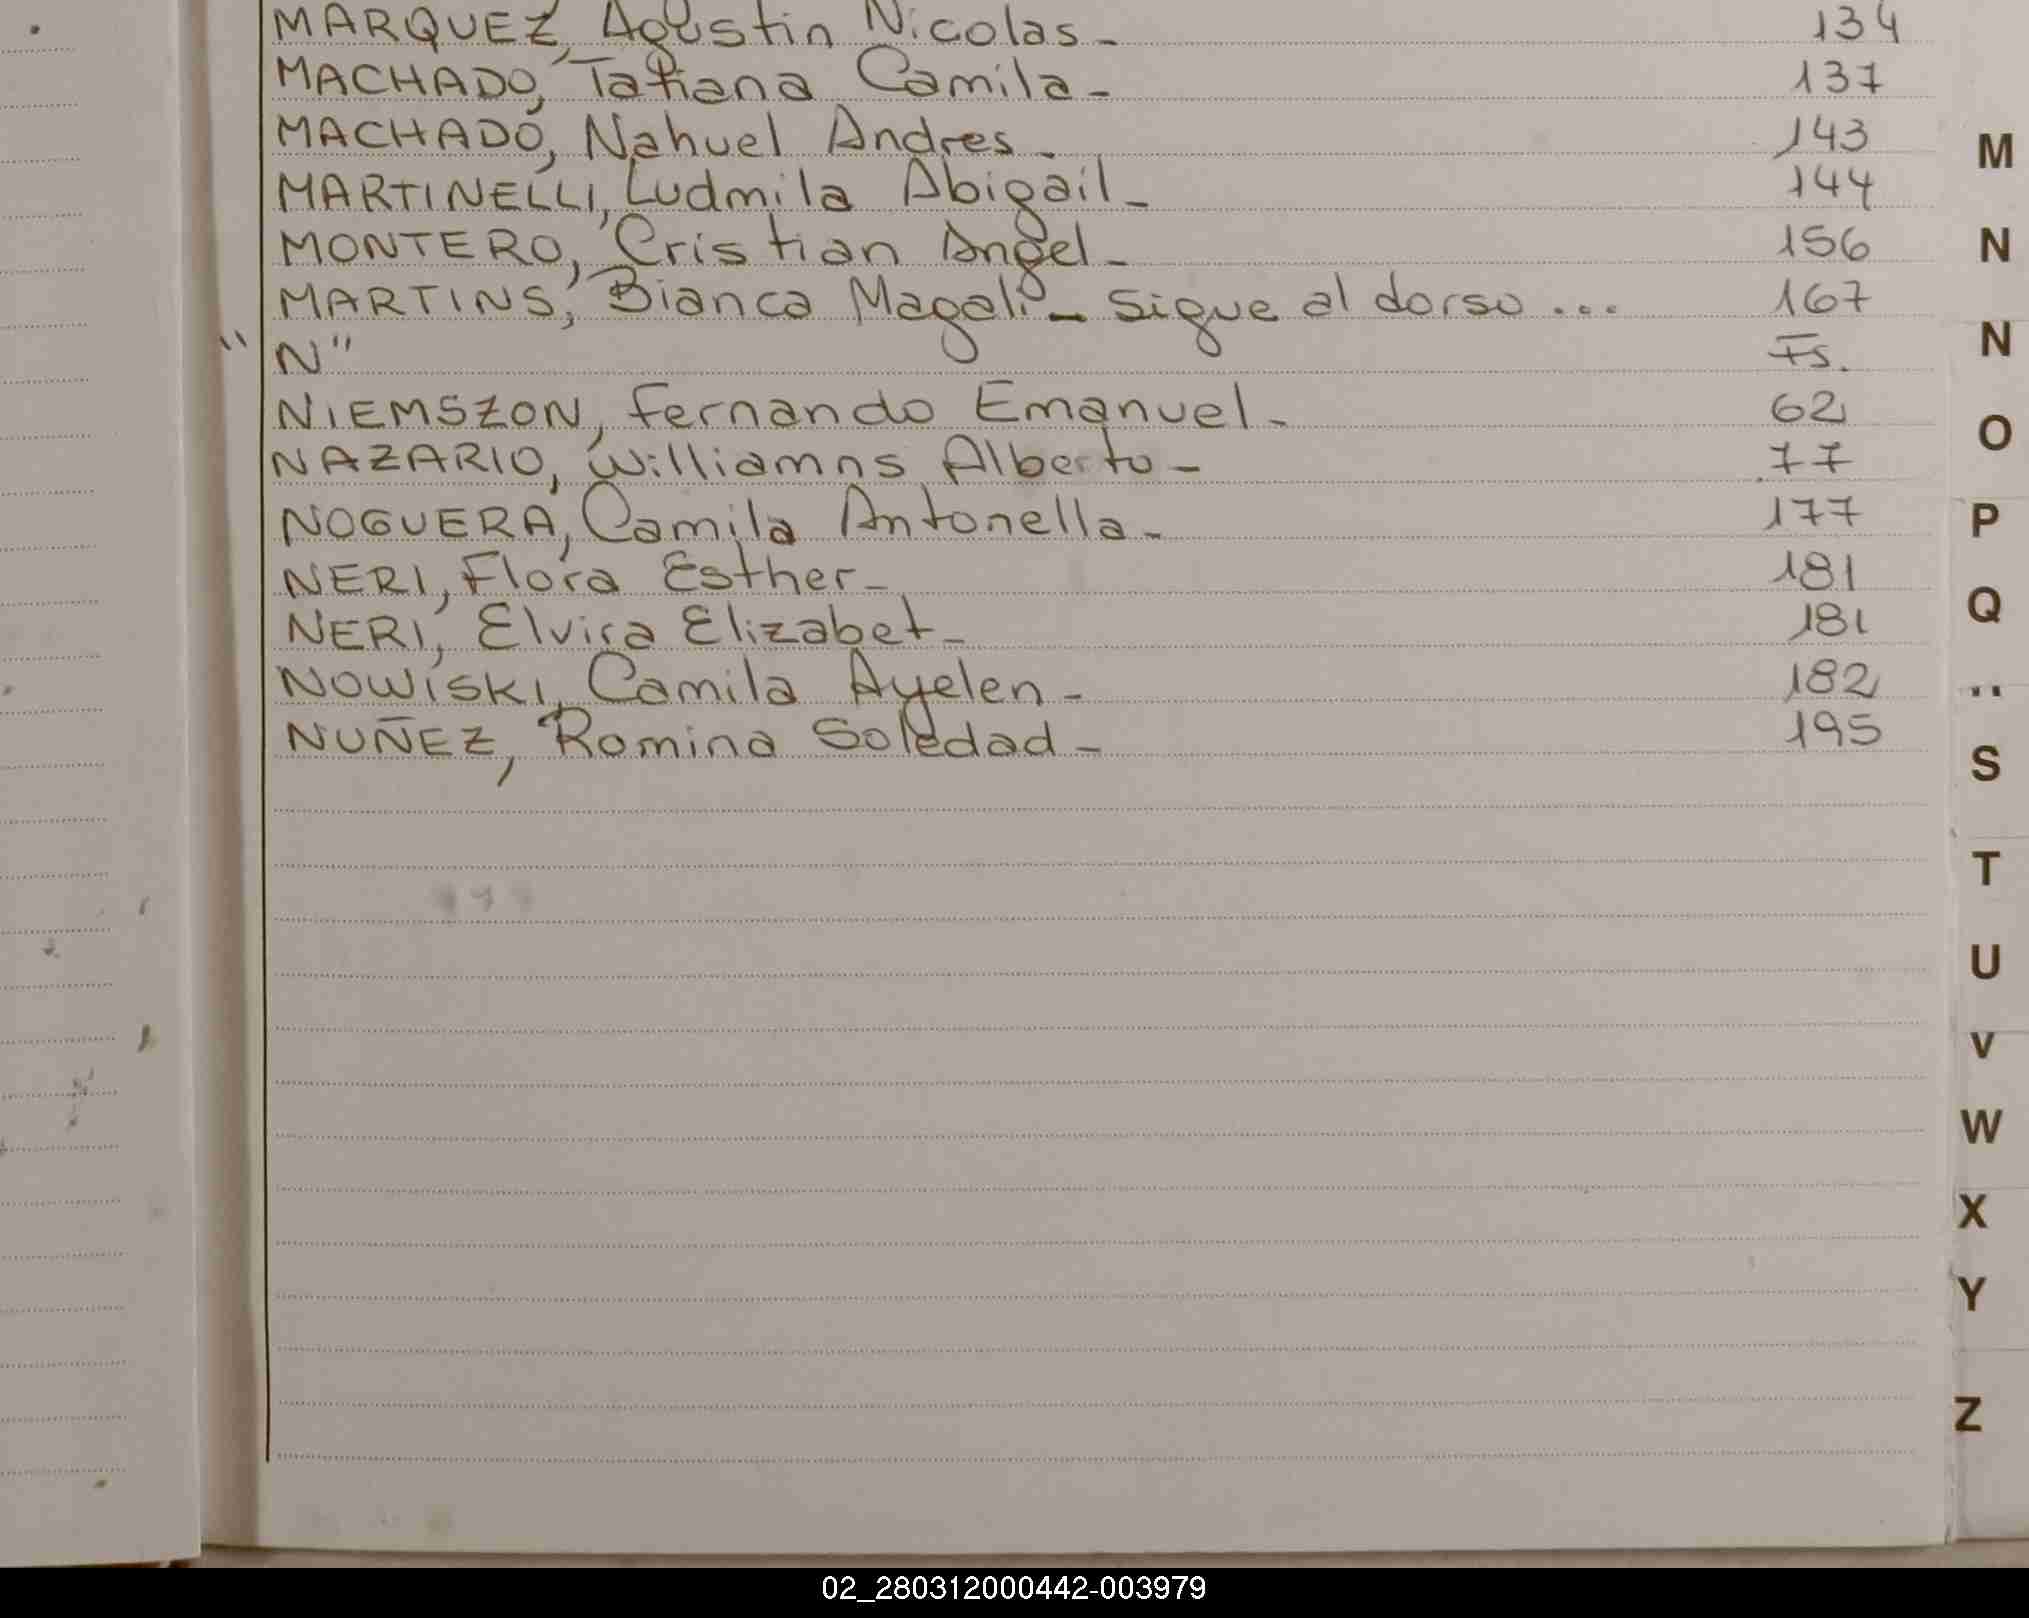 MARQUEZ, Agustin Nicolas- 134
MACHADO, Tatiana Camila- 137
MACHADO, Nahuel Andres- 143
MARTINELLI, Ludmila Abigail- 144
MONTERO, Cristian Angel- 156
MARTINS, Bianca Magali- Sigue al dorso... 167
"N" Fs.
NIEMSZON, Fernando Emanuel- 62
NAZARIO, Williamns Alberto- 77
NOGUERA, Camila Antonella- 177
NERI, Flora Esther- 181
NERI, Elvira Elizabet- 181
NOWISKI, Camila Ayelen- 182
NUÑEZ, Romina Soledad- 195
M
N
N
O
P
Q
S
T
U
V
W
X
Y
Z
02_280312000442-003979